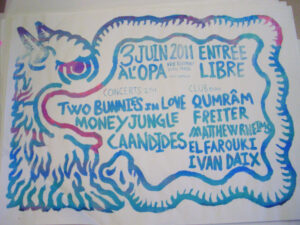 3 JUIN 2011
À L'OPA
ENTRÉE
LIBRE
CONCERTS
TWO BUNNIES IN LOVE
MONEY JUNGLE
CAANDIDES
CLUB
QUMRÂM
FREITER
MATTHEW RHEIMS
EL FAROUKI
IVAN DAIX